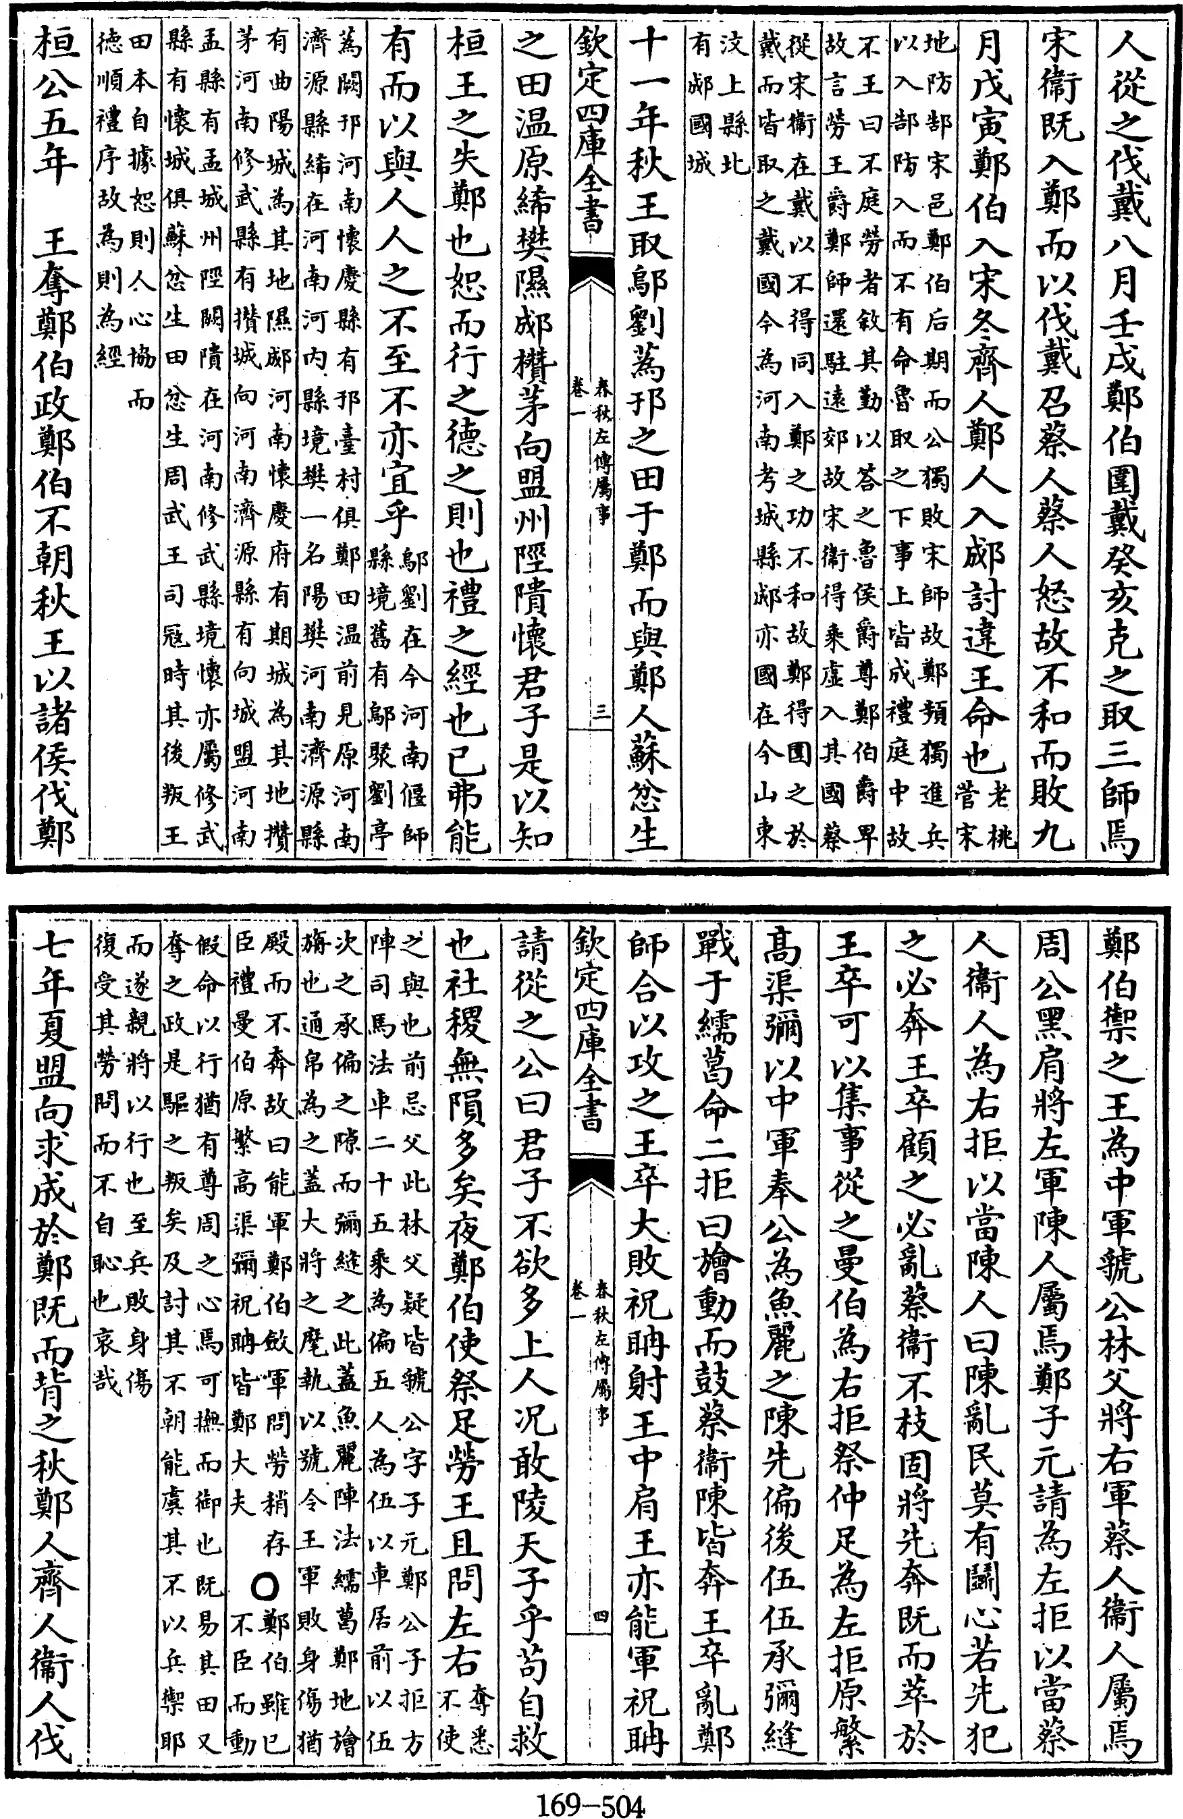 人從之伐戴八月壬戌鄭伯圍戴癸亥克之取三師焉
宋衛既入鄭而以伐戴召蔡人蔡人怒故不和而敗九
月戊寅鄭伯入宋冬齊人鄭人入郕討違王命也
老桃
菅宋
地防郜宋邑鄭伯后期而公獨敗宋師故鄭頻獨進兵
以入郜防入而不有命魯取之下事上皆成禮庭中故
不王曰不庭勞者敘其勤以答之魯侯爵尊鄭伯爵卑
故言勞王爵鄭師還駐遠郊故宋衛得乘虛入其國蔡
從宋衛在戴以不得同入鄭之功不和故鄭得圍之於
戴而皆取之戴國今為河南考城縣郕亦國在今山東
汶上縣北
有郕國城
十一年秋王取鄔劉蒍邘之田于鄭而與鄭人蘇忿生
欽定四庫全書
春秋左傳屬事
卷一
三
之田温原絺樊隰郕欑茅向盟州陘隤懷君子是以知
桓王之失鄭也恕而行之德之則也禮之經也已弗能
有而以與人人之不至不亦宜乎
鄔劉在今河南偃師
縣境舊有鄔聚劉亭
蒍闕邘河南懷慶縣有邘臺村俱鄭田温前見原河南
濟源縣絺在河南河内縣境樊一名陽樊河南濟源縣
有曲陽城為其地隰郕河南懷慶府有期城為其地攢
茅河南修武縣有攢城向河南濟源縣有向城盟河南
孟縣有孟城州陘闕隤在河南修武縣境懷亦屬修武
縣有懷城俱蘇忿生田忿生周武王司寇時其後叛王
田本自據恕則人心協而
德順禮序故為則為經
桓公五年　王奪鄭伯政鄭伯不朝秋王以諸侯伐鄭
鄭伯禦之王為中軍虢公林父將右軍蔡人衛人屬焉
周公黑肩將左軍陳人屬焉鄭子元請為左拒以當蔡
人衛人為右拒以當陳人曰陳亂民莫有鬭心若先犯
之必奔王卒顧之必亂蔡衛不枝固將先奔既而萃於
王卒可以集事從之曼伯為右拒祭仲足為左拒原繁
高渠彌以中軍奉公為魚麗之陳先偏後伍伍承彌縫
戰于繻葛命二拒曰旝動而鼓蔡衛陳皆奔王卒亂鄭
師合以攻之王卒大敗祝聃射王中肩王亦能軍祝聃
欽定四庫全書
春秋左傳屬事
卷一
四
請從之公曰君子不欲多上人況敢陵天子乎苟自救
也社稷無隕多矣夜鄭伯使祭足勞王且問左右
奪悉
不使
之與也前忌父此林父疑皆虢公字子元鄭公子拒方
陣司馬法車二十五乘為偏五人為伍以車居前以伍
次之承偏之隙而彌縫之此蓋魚麗陣法繻葛鄭地旝
旃也通帛為之蓋大將之麾執以號令王軍敗身傷猶
殿而不奔故曰能軍鄭伯斂軍問勞稍存○鄭伯雖已
臣禮曼伯原繁高渠彌祝聃皆鄭大夫　不臣而動
假命以行猶有尊周之心焉可撫而御也既易其田又
奪之政是驅之叛矣及討其不朝能虞其不以兵禦耶
而遂親將以行也至兵敗身傷
復受其勞問而不自恥也哀哉
七年夏盟向求成於鄭既而背之秋鄭人齊人衛人伐
169–504